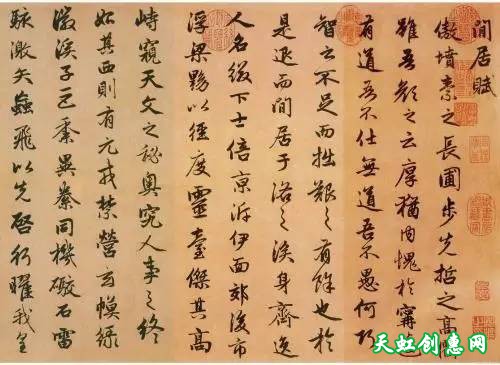 閒居賦
傲墳素之長圃步先哲之高衢
雖吾顏之云厚猶内愧於甯蘧
有道吾不仕無道吾不愚何巧
智之不足而拙艱之有餘也於
是退而閒居于洛之涘身齊逸
人名綴下士倍京泝伊面郊後市
浮梁黝以徑度靈臺傑其高
峙窺天文之秘奥究人事之終
始其西則有元戎禁營玄幙綠
徽溪子巨黍異絭同機礮石雷
駭激矢蝱飛以先啓行曜我皇
天虹创惠网